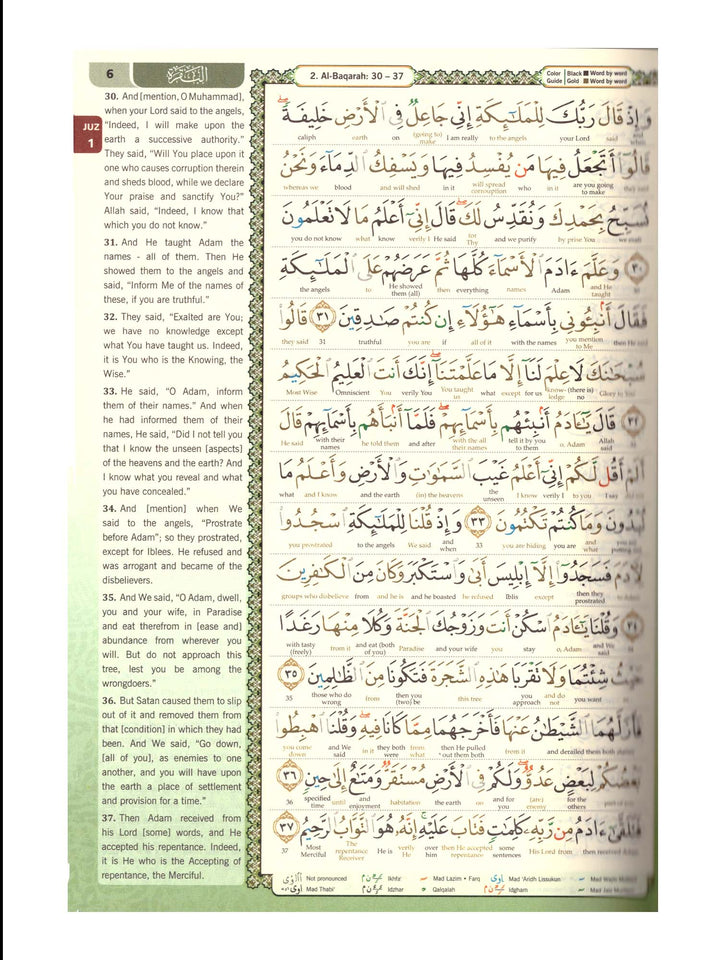 6
البقرة
JUZ
1
30. And [mention, O Muhammad],
when your Lord said to the angels,
“Indeed, I will make upon the
earth a successive authority.”
They said, “Will You place upon it
one who causes corruption therein
and sheds blood, while we declare
Your praise and sanctify You?”
Allah said, “Indeed, I know that
which you do not know.”
31. And He taught Adam the
names - all of them. Then He
showed them to the angels and
said, “Inform Me of the names of
these, if you are truthful.”
32. They said, “Exalted are You;
we have no knowledge except
what You have taught us. Indeed,
it is You who is the Knowing, the
Wise.”
33. He said, “O Adam, inform
them of their names.” And when
he had informed them of their
names, He said, “Did I not tell you
that I know the unseen [aspects]
of the heavens and the earth? And
I know what you reveal and what
you have concealed.”
34. And [mention] when We
said to the angels, “Prostrate
before Adam”; so they prostrated,
except for Iblees. He refused and
was arrogant and became of the
disbelievers.
35. And We said, “O Adam, dwell,
you and your wife, in Paradise
and eat therefrom in [ease and]
abundance from wherever you
will. But do not approach this
tree, lest you be among the
wrongdoers.”
36. But Satan caused them to slip
out of it and removed them from
that [condition] in which they had
been. And We said, “Go down,
[all of you], as enemies to one
another, and you will have upon
the earth a place of settlement
and provision for a time.”
37. Then Adam received from
his Lord [some] words, and He
accepted his repentance. Indeed,
it is He who is the Accepting of
repentance, the Merciful.
2. Al-Baqarah: 30 – 37
Color Guide
Black Word by word
Gold Word by word
وَإِذْ قَالَ رَبُّكَ لِلْمَلَٰٓئِكَةِ إِنِّى جَاعِلٌ فِى ٱلْأَرْضِ خَلِيفَةً ۖ
caliph earth on (going to) make I am really to the angels your Lord said and when
قَالُوٓا۟ أَتَجْعَلُ فِيهَا مَن يُفْسِدُ فِيهَا وَيَسْفِكُ ٱلدِّمَآءَ وَنَحْنُ
whereas we blood and will shed in it will spread corrouption who in it are you going to make they said
نُسَبِّحُ بِحَمْدِكَ وَنُقَدِّسُ لَكَ ۖ قَالَ إِنِّىٓ أَعْلَمُ مَا لَا تَعْلَمُونَ
you do not know what know verily I He said for Thy and we purify by prise You we exalt
٣٠ وَعَلَّمَ ءَادَمَ ٱلْأَسْمَآءَ كُلَّهَا ثُمَّ عَرَضَهُمْ عَلَى ٱلْمَلَٰٓئِكَةِ
the angels to He showed them (all) then everything names Adam and He taught
فَقَالَ أَنۢبِـُٔونِى بِأَسْمَآءِ هَٰٓؤُلَآءِ إِن كُنتُمْ صَٰدِقِينَ ٣١ قَالُوا۟
they said 31 truthful you are if all of it with the names you mention to Me then He said
سُبْحَٰنَكَ لَا عِلْمَ لَنَآ إِلَّا مَا عَلَّمْتَنَآ ۖ إِنَّكَ أَنتَ ٱلْعَلِيمُ ٱلْحَكِيمُ
Most Wise Omniscient You verily You You taught us what except for us know- (there is) ledge no Glory to You
٣٢ قَالَ يَٰٓـَٔادَمُ أَنۢبِئْهُم بِأَسْمَآئِهِمْ ۖ فَلَمَّآ أَنۢبَأَهُم بِأَسْمَآئِهِمْ قَالَ
He said with their names he told them and after with the all their names tell it by you to them o, Adam Allah said
أَلَمْ أَقُل لَّكُمْ إِنِّىٓ أَعْلَمُ غَيْبَ ٱلسَّمَٰوَٰتِ وَٱلْأَرْضِ وَأَعْلَمُ مَا
what and I know and the earth (in) the heavens the unseen I know verily I to you I say
تُبْدُونَ وَمَا كُنتُمْ تَكْتُمُونَ ٣٣ وَإِذْ قُلْنَا لِلْمَلَٰٓئِكَةِ ٱسْجُدُوا۟
you prostrated to the angels We said and when 33 you are hiding you are and what
لِـَٔادَمَ فَسَجَدُوٓا۟ إِلَّآ إِبْلِيسَ أَبَىٰ وَٱسْتَكْبَرَ وَكَانَ مِنَ ٱلْكَٰفِرِينَ
groups who dibelieve from and he is and he boasted he refused Iblis except then they prostrated to Adam
٣٤ وَقُلْنَا يَٰٓـَٔادَمُ ٱسْكُنْ أَنتَ وَزَوْجُكَ ٱلْجَنَّةَ وَكُلَا مِنْهَا رَغَدًا
with tasty (freely) from it and eat (both of you) Paradise and your wife you stay o, Adam and We said
حَيْثُ شِئْتُمَا وَلَا تَقْرَبَا هَٰذِهِ ٱلشَّجَرَةَ فَتَكُونَا مِنَ ٱلظَّٰلِمِينَ ٣٥
35 those who do wrong from then you (two) be tree this you approach and do not you want
فَأَزَلَّهُمَا ٱلشَّيْطَٰنُ عَنْهَا فَأَخْرَجَهُمَا مِمَّا كَانَا فِيهِ ۖ وَقُلْنَا ٱهْبِطُوا۟
you come down and We said in it they both were from what then He pulled out them both from it and derailed them both
بَعْضُكُمْ لِبَعْضٍ عَدُوٌّ ۖ وَلَكُمْ فِى ٱلْأَرْضِ مُسْتَقَرٌّ وَمَتَٰعٌ إِلَىٰ حِينٍ ٣٦
36 specified time until and enjoyment habitation the earth on and for you (are) enemy for the others
فَتَلَقَّىٰٓ ءَادَمُ مِن رَّبِّهِۦ كَلِمَٰتٍ فَتَابَ عَلَيْهِ ۚ إِنَّهُۥ هُوَ ٱلتَّوَّابُ ٱلرَّحِيمُ ٣٧
37 Most Merciful The repentance Receiver He is verily He over him then He accepted repentance some sentences His Lord from then received Adam
Not pronounced Ikhfa' Mad Lazim • Farq Mad 'Aridh Lissukun
Mad Thabi'i Idzhar Qalqalah Idgham